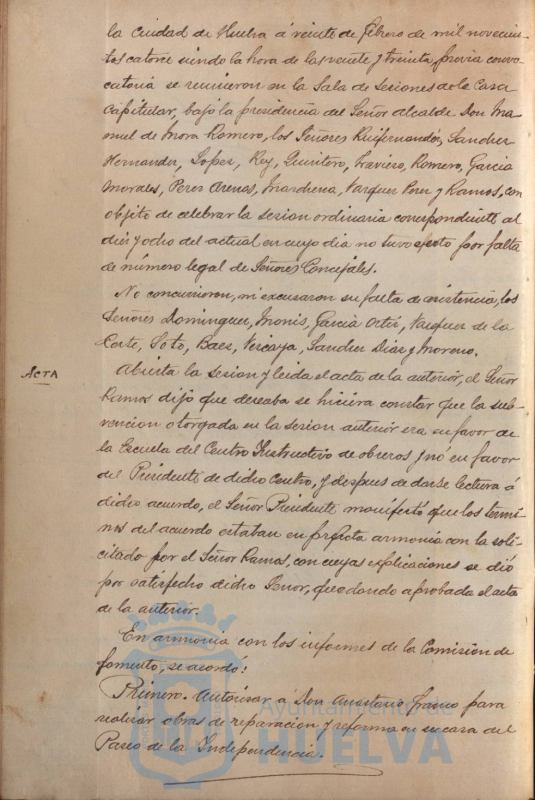 la ciudad de Huelva á veinte de febrero de mil novecien-
tos catorce siendo la hora de las veinte y treinta, previa convo-
catoria se reunieron en la Sala de Sesiones de la Casa
Capitular, bajo la presidencia del Señor Alcalde Don Ma-
nuel de Mora Romero, los Señores Ruifernandez, Sanchez
Hernandez, Lopez, Rey, Quintero, Traviesо, Romero, Garcia
Morales, Perez Arenas, Marchena, Vazquez Perez y Ramos, con
objeto de celebrar la sesion ordinaria correspondiente al
diez y ocho del actual en cuyo dia no tuvo efecto por falta
de número legal de Señores Concejales.
No concurrieron, ni excusaron su falta de asistencia, los
Señores Dominguez, Monis, Garcia Ortiz, Vazquez de la
Corte, Soto, Baez, Vizcaya, Sanchez Diaz y Moreno.
ACTA
Abierta la sesion y leida el acta de la anterior, el Señor
Ramos dijo que deseaba se hiciera constar que la sub-
vencion otorgada en la sesion anterior era en favor de
la Escuela del Centro Instructivo de obreros y nó en favor
del Presidente de dicho Centro, y despues de darse lectura á
dicho acuerdo, el Señor Presidente manifestó que los termi-
nos del acuerdo estaban en perfecta armonia con lo soli-
citado por el Señor Ramos, con cuyas explicaciones se dió
por satisfecho dicho Señor, quedando aprobada el acta
de la anterior.
En armonia con los informes de la Comision de
fomento, se acordó:
Primero. Autorizar a Don Anastasio Franco para
realizar obras de reparacion y reforma en su casa del
Paseo de la Independencia.
Ayuntamiento de
HUELVA